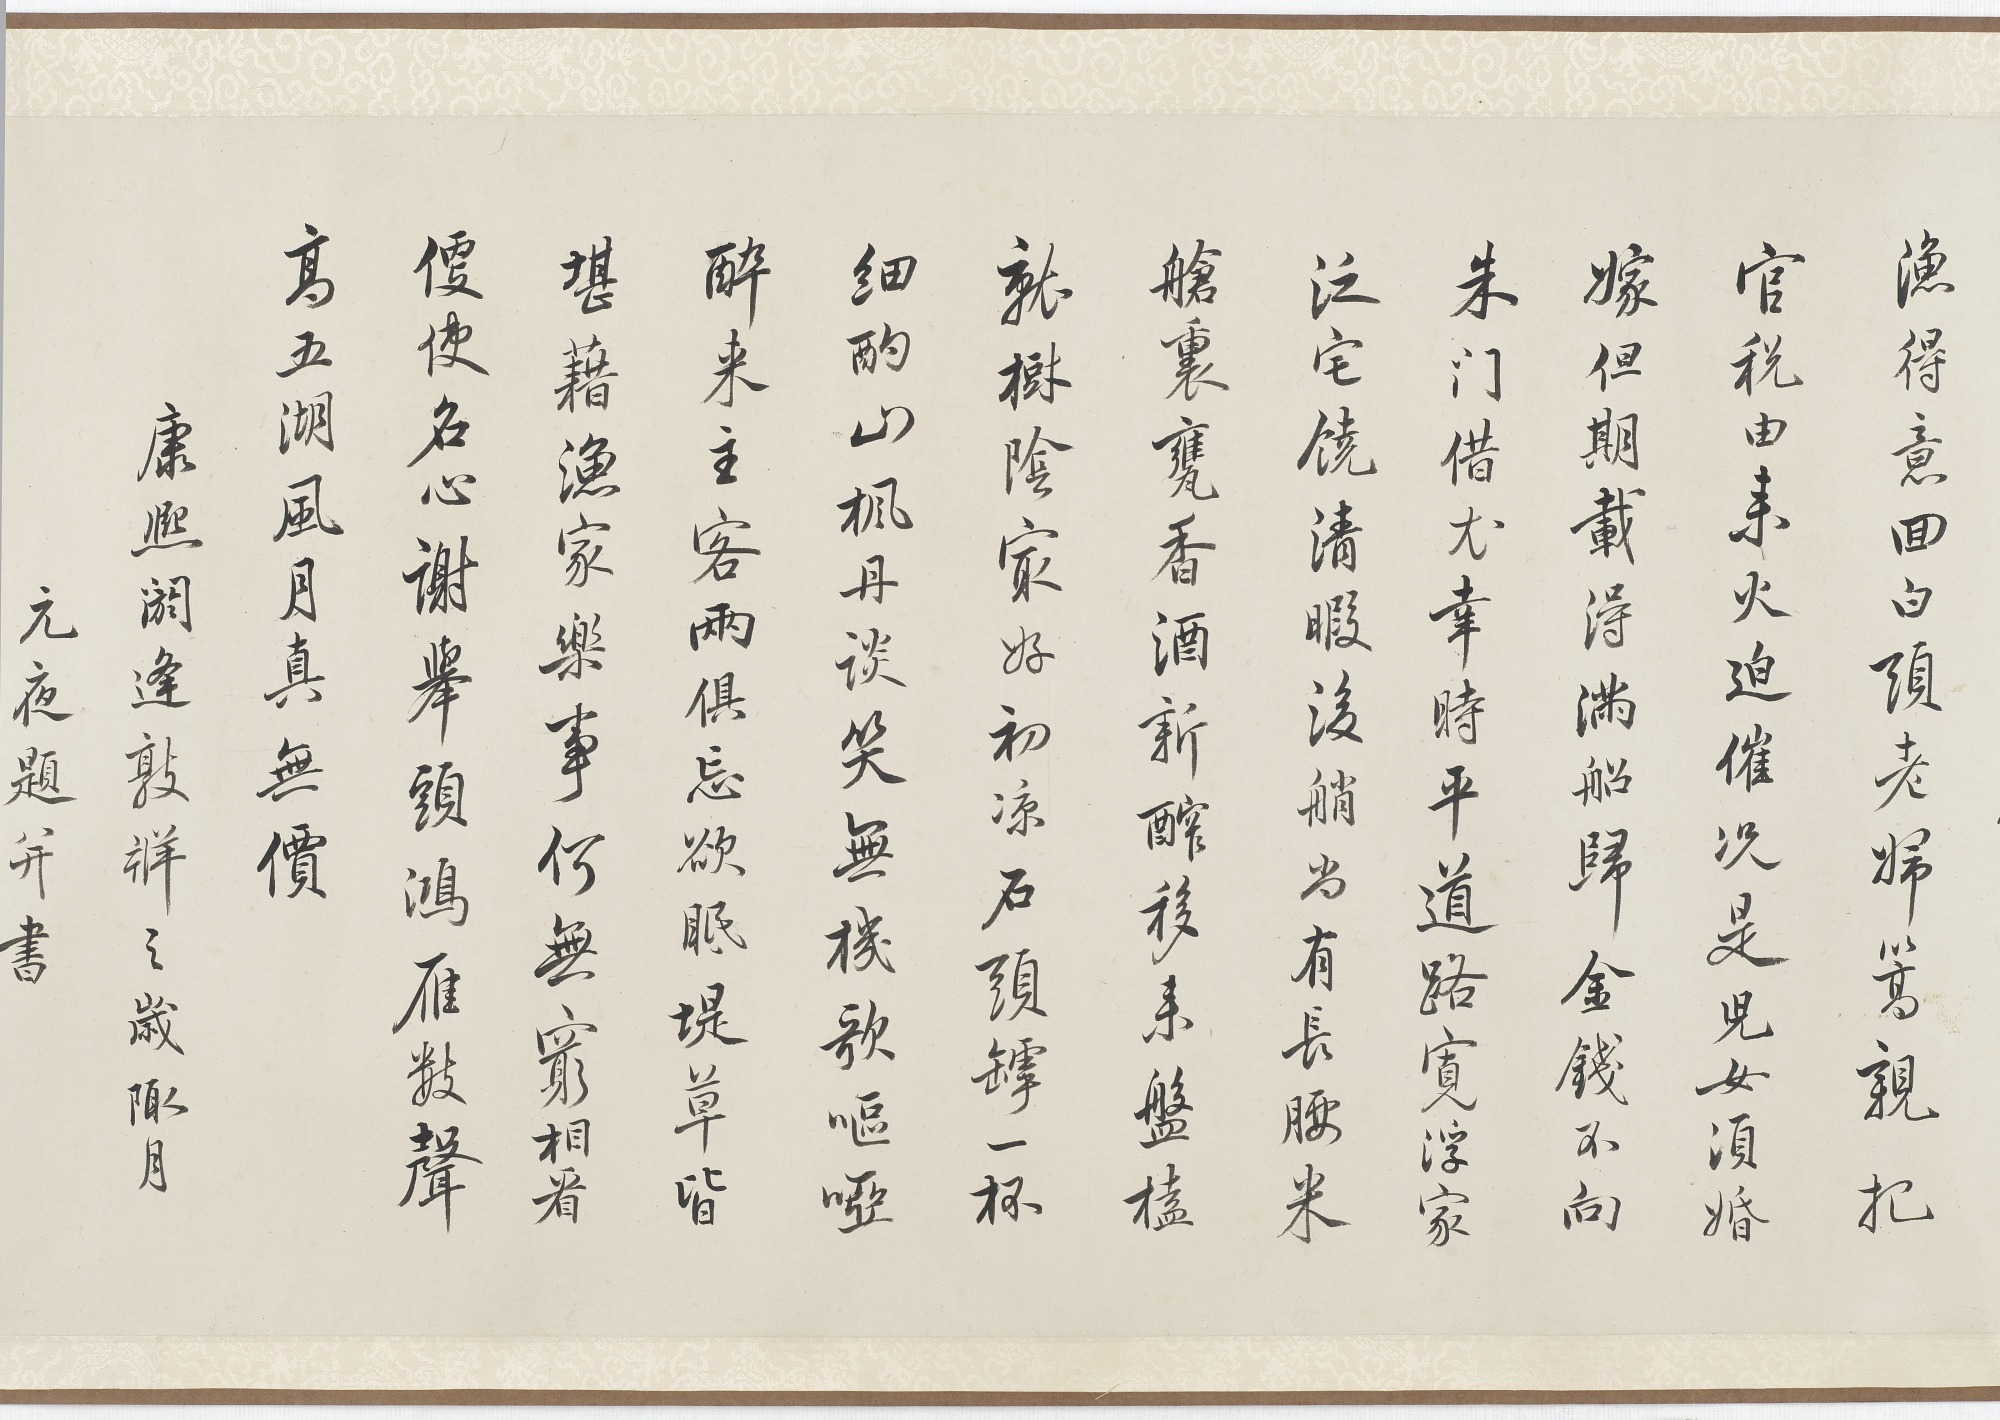 漁得意回白頭老婦篙親把
官税由来火迫催况是兒女須婚
嫁但期載得滿船歸金錢不向
朱门借尤幸時平道路寬浮家
泛宅饒清暇後艄尚有長腰米
艙裏甕香酒新醡移来盤榼
就樹陰最好初凉石頭罅一杯
細酌山楓丹談笑無機歌嘔啞
醉来主客兩俱忘欲眠堤草皆
堪藉漁家樂事何無窮相看
便使名心謝舉頭鴻雁數聲
高五湖風月真無價
康熙閼逢敦牂之歲陬月
元夜題并書